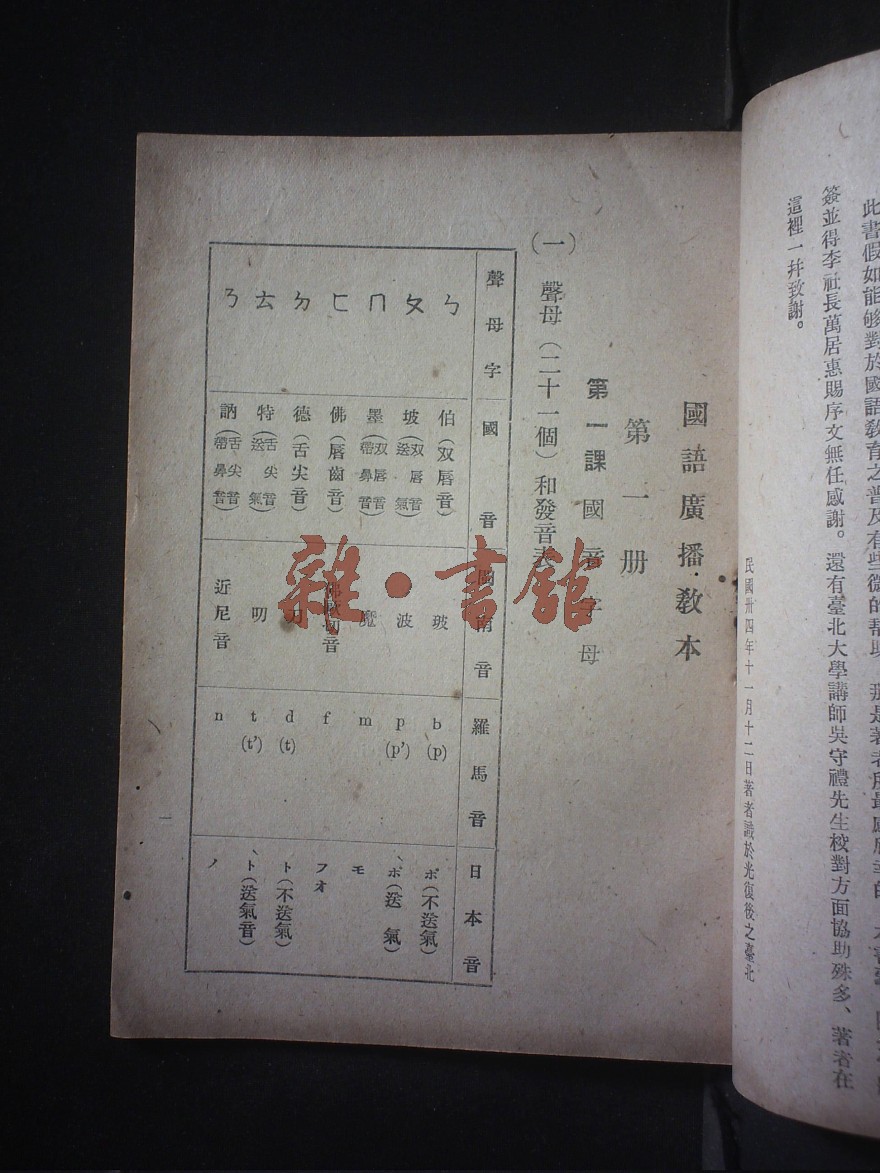 此書假如能够對於國語敎育之普及有些微的幫助、那是著者所最
簽並得李社長萬居惠賜序文無任感謝。還有臺北大學講師吳守禮先生校對方面協助殊多、著者在
這裡一幷致謝。
民國卅四年十一月十二日著者識於光復後之臺北
國語廣播敎本
第一册
第一課 國音字母
(一) 聲母(二十一個)和發音表
聲母字 國音 閩南音 羅馬音 日本音
ㄅ 伯(双唇音) 玻 b (p) ポ(不送氣)
ㄆ 坡(双唇音送氣) 波 p (p') ヽポ(送氣)
ㄇ 墨(双唇音帶鼻音) 魔 m モ
ㄈ 佛(唇齒音) 佛 音 f フォ
ㄉ 德(舌尖音) 刀 d (t) ト(不送氣)
ㄊ 特(舌尖音送氣) 叨 t (t') ヽト(送氣音)
ㄋ 訥(舌尖音帶鼻音) 近尼音 n ノ
一
雜·書館